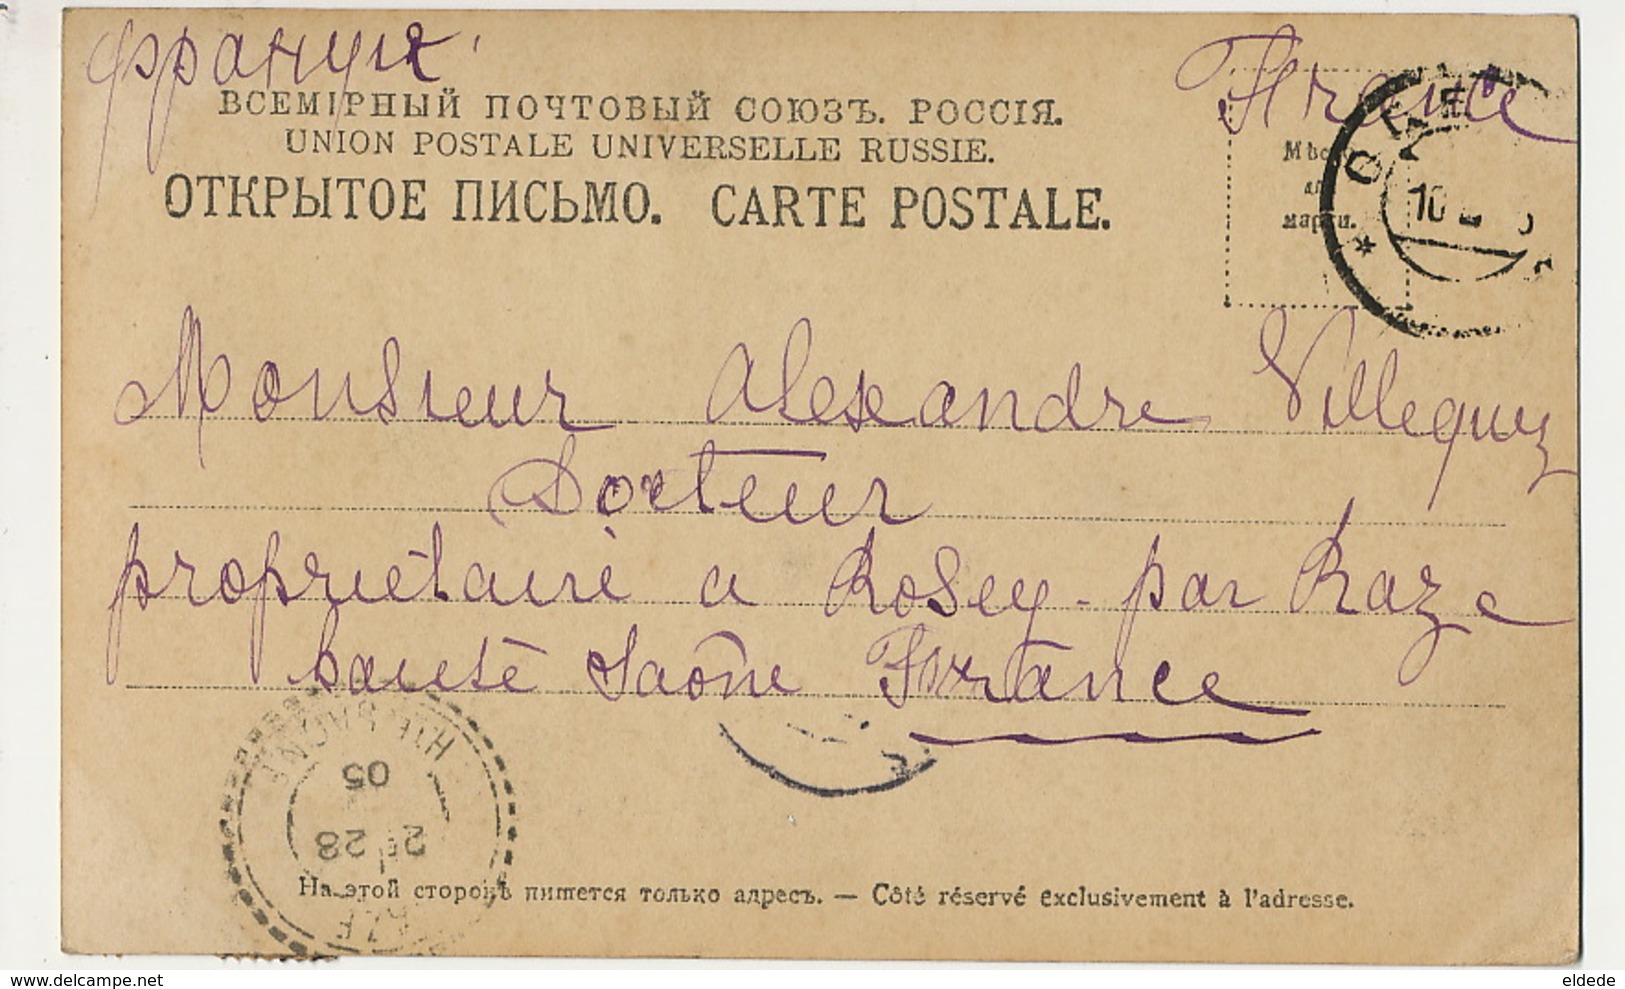 франціz France
ВСЕМІРНЫЙ ПОЧТОВЫЙ СОЮЗЪ. РОССІЯ.
UNION POSTALE UNIVERSELLE RUSSIE.
ОТКРЫТОЕ ПИСЬМО. CARTE POSTALE.
Мѣсто
для
марки.
10
Monsieur Alexandre Villequez
Docteur
propriétaire a Rosey par Raze
haute Saône France
HTE SAONE
05
28
RAZE
На этой сторонѣ пишется только адресъ. — Côté réservé exclusivement à l'adresse.
eldede